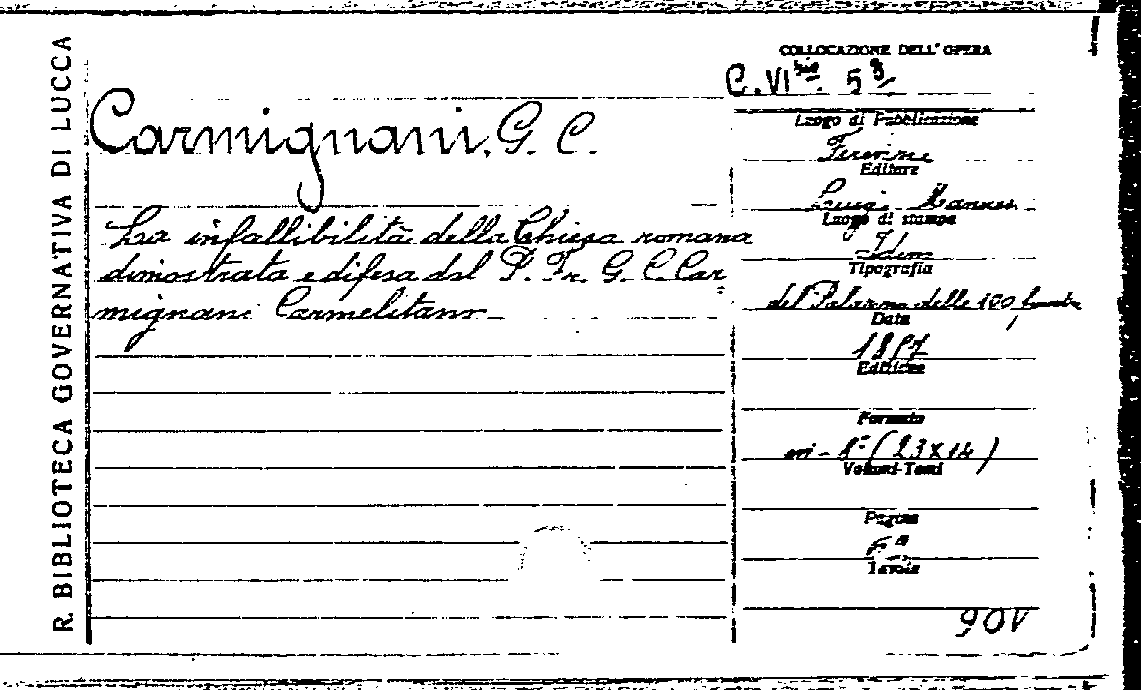 R. BIBLIOTECA GOVERNATIVA DI LUCCA
Carmignani, G. C.
La infallibilità della Chiesa romana
dimostrata e difesa dal P. Fr. G. C. Car
mignani Carmelitano
COLLOCAZIONE DELL' OPERA
C. VI bis. 58
Luogo di Pubblicazione
Firenze
Editore
Luigi
Luogo di stampa
Idem
Tipografia
del delle 100
Data
Edizione
Formato
in - 8° (23 x 14)
Volumi-Tomi
Pagine
Tavole